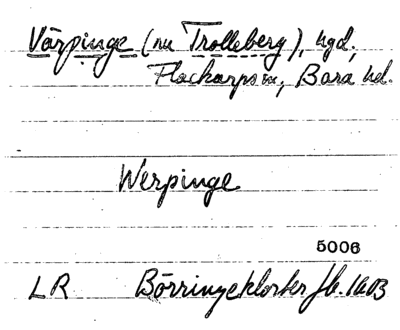 Värpinge (nu Trolleberg), hgd,
Flackarps sn, Bara hd.
Werpinge
5006
LR Börringekloster jb.